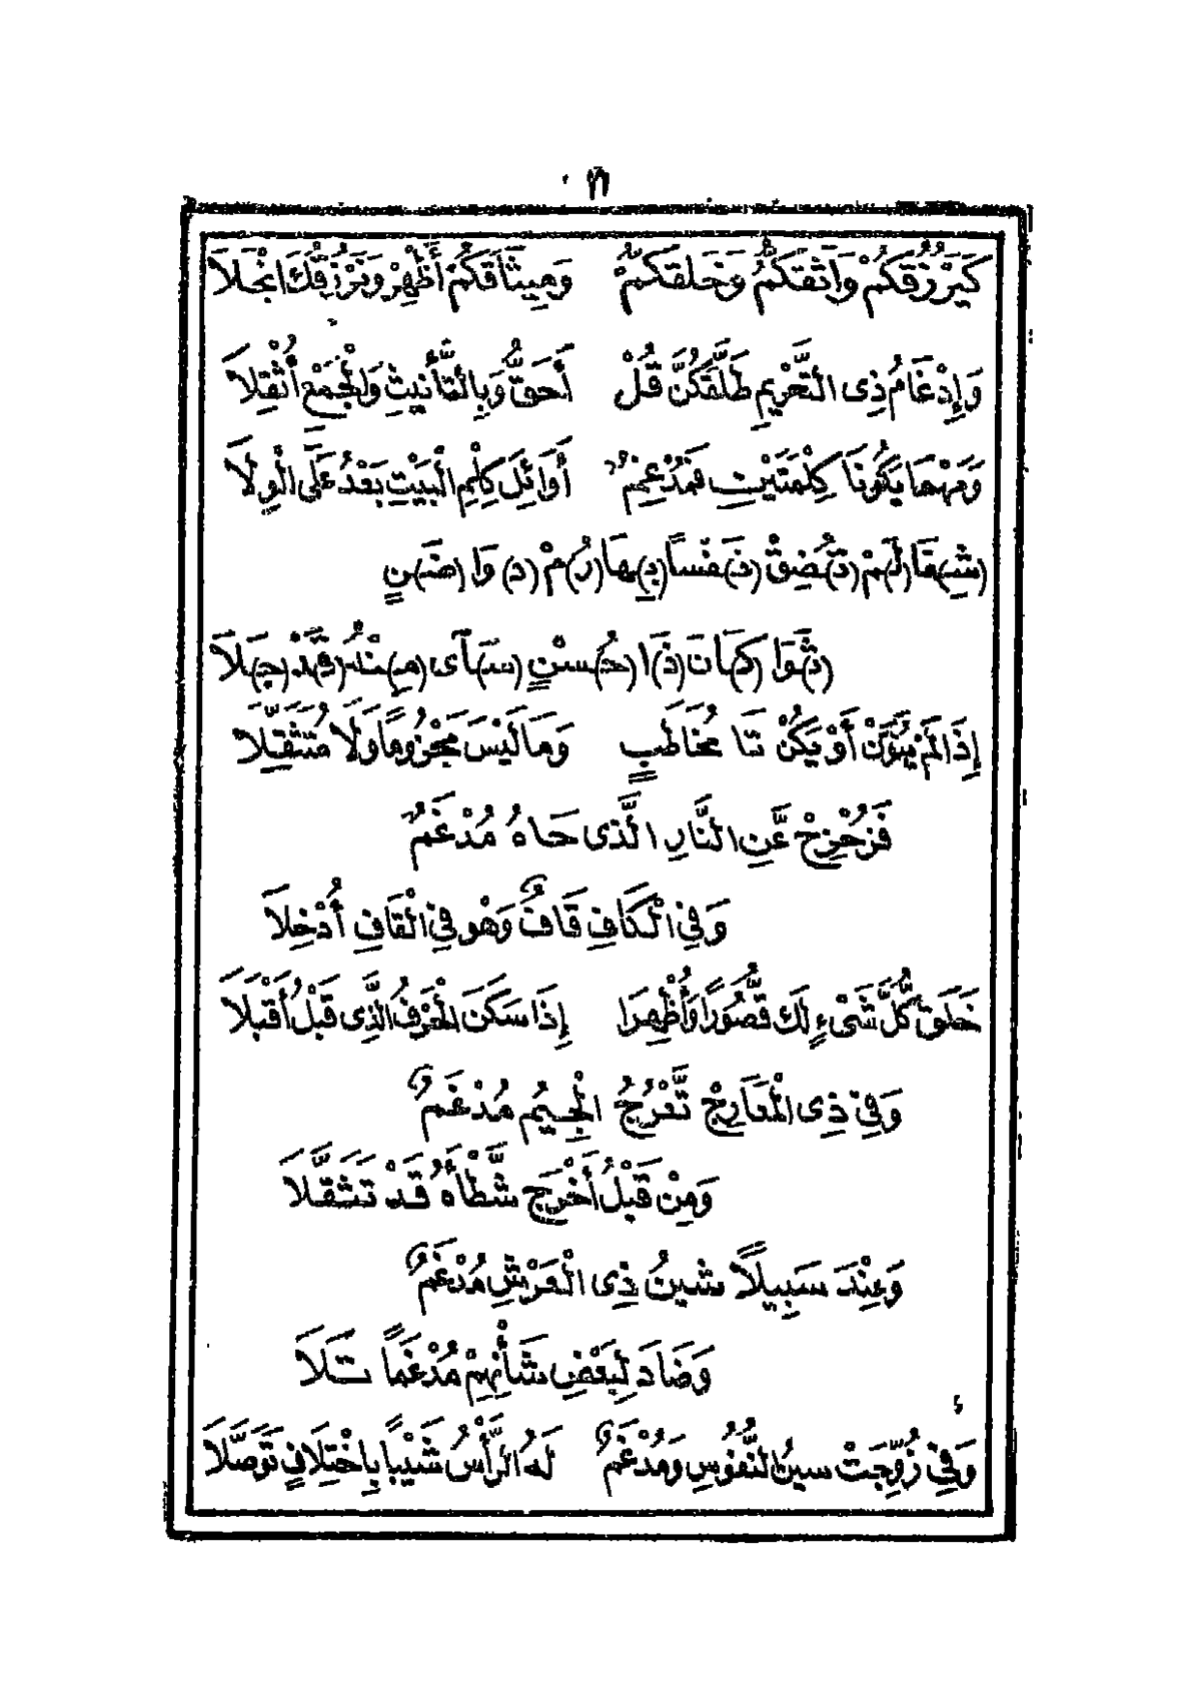 كَيَرْزُقْكُمْ وَاثَقَكُمُ وَخَلَقَكُمْ وَمِيثَاقَكُمْ أَظْهِرْ وَنَرْزُقُكَ انْجَلَا
وَإِدْغَامُ ذِى التَّحْرِيمِ طَلَّقَكُنَّ قُلْ أَحَقُّ وَبِالتَّأْنِيثِ وَالْجَمْعِ أُثْقِلَا
وَمَهْمَا يَكُونَا كِلْمَتَيْنِ فَمُدْغِمٌ أَوَائِلَ كِلْمِ الْبَيْتِ بَعْدُ عَلَى الْوِلَا
(شِ)فَا (لَ)مْ (تُ)ضِقْ (نَ)فْسًا (بِ)هَا (رُ)مْ (دَ)وَا (ضَ)نٍ
(ثَ)وَا (كَ)انَ (ذَ)ا (حُ)سْنٍ (سَ)آى (مِ)نْهُ (قَ)دْ (جَ)لَا
إِذَا لَمْ يُنَوَّنْ أَوْ يَكُنْ تَا مُخَاطَبٍ وَمَا لَيْسَ مَجْزُومًا وَلَا مُتَثَقِّلَا
فَزُحْزِحْ عَّنِ النَّارِ الَّذِى حَاهُ مُدْغَمٌ
وَفِى الْكَافِ قَافٌ وَهْوَ فِى الْقَافِ أُدْخِلَا
خَلَقَ كُّلَّ شَىْءٍ لَكَ قُّصُورًا وَأُظْهِرَا إِذَا سَكَنَ الْحَرْفُ الَّذِى قَبْلُ أَقْبَلَا
وَفِى ذِى الْمَعَارِجِ تَّعْرُجُ الْجِيمُ مُدْغَمٌ
وَمِنْ قَبْلُ أَخْرَجَ شَّطْأَهُ قَدْ تَثَقَّلَا
وَعِنْدَ سَبِيلًا شِينُ ذِى الْعَرْشِ مُدْغَمٌ
وَضَادَ لِبَعْضِ شَأْنِهِمْ مُدْغَمًا تَلَا
وَفِى زُوِّجَتْ سِينُ النُّفُوسِ وَمُدْغَمٌ لَهُ الرَّأْسُ شَيْبًا بِاخْتِلَافٍ تَوَصَّلَا